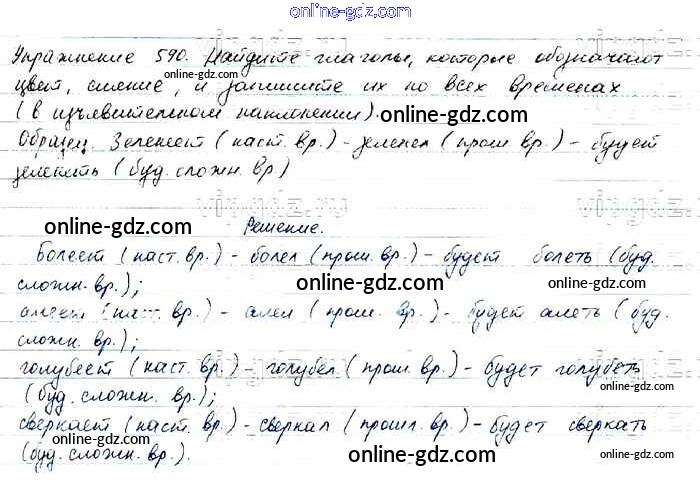 online-gdz.com
Упражнение 590. Найдите глаголы, которые обозначают
цвет, сияние, и запишите их во всех временах
online-gdz.com
(в изъявительном наклонении).
online-gdz.com
Образец. Зеленеет (наст. вр.) - зеленел (прош. вр.) - будет
зеленеть (буд. сложн. вр)
online-gdz.com
Решение.
online-gdz.com
online-gdz.com
Болеет (наст. вр.) - болел (прош. вр.) - будет болеть (буд.
сложн. вр.);
online-gdz.com
online-gdz.com
алеет (наст. вр.) - алел (прош. вр.) - будет алеть (буд.
сложн. вр.);
online-gdz.com
голубеет (наст. вр.) - голубел (прош. вр.) - будет голубеть
(буд. сложн. вр.);
online-gdz.com
online-gdz.com
сверкает (наст. вр.) - сверкал (прошл. вр.) - будет сверкать
(буд. сложн. вр.).
online-gdz.com
online-gdz.com
online-gdz.com